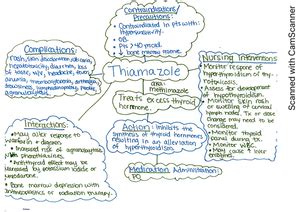 Contraindications
Precautions:
• Contraindicated in pts with
hypersensitivity.
• OB
• Pts > 40 yo
• ↓ bone marrow
Complications:
rash, skin
loss of taste, n/v, headache, fever,
Thamazole
aka
methimazole
Treats excess thyroid
hormone.
Nursing Interventions
• Monitor response of
hyperthyroidism
• Assess for development
of hypothyroidism.
• Monitor skin rash
or swelling of cervical
lymph nodes. Tx or dose
change may need to be
considered.
• Monitor thyroid
panel during tx.
• Monitor WBC.
• May cause ↑ liver
enzymes.
Interactions:
• May alter response to
warfarin & digoxin.
• Increased risk of agranulocytosis
• Antithyroid effect may be
versed by potassium iodide or
• Bone marrow depression with
antineoplastics or radiation therapy.
Action: Inhibits the
synthesis of thyroid hormones
resulting in an alleviation
of hyperthyroidism.
Medication Administration:
PO
Scanned with CamScanner